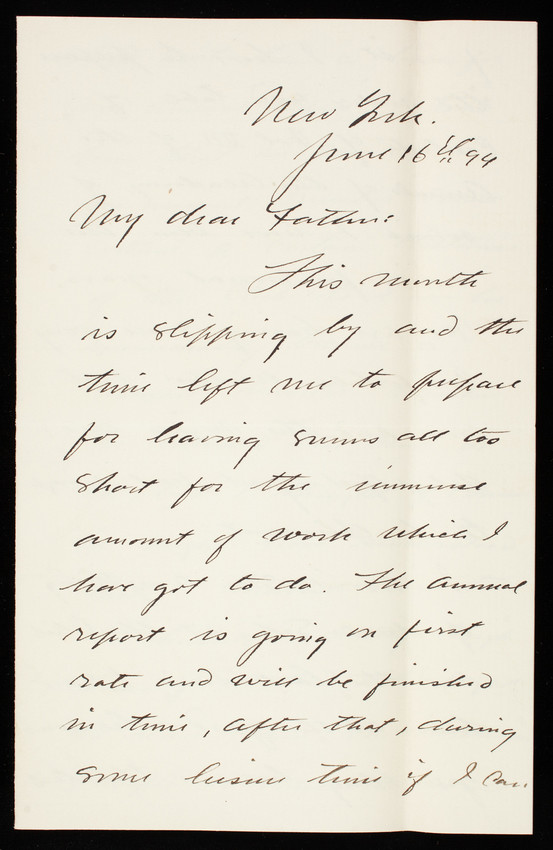 New York.
June 16th 94
My dear Father:
This month
is slipping by and the
time left me to prepare
for leaving seems all too
short for the immense
amount of work which I
have got to do. The annual
report is going on first
rate and will be finished
in time, after that, during
some leisure time if I can